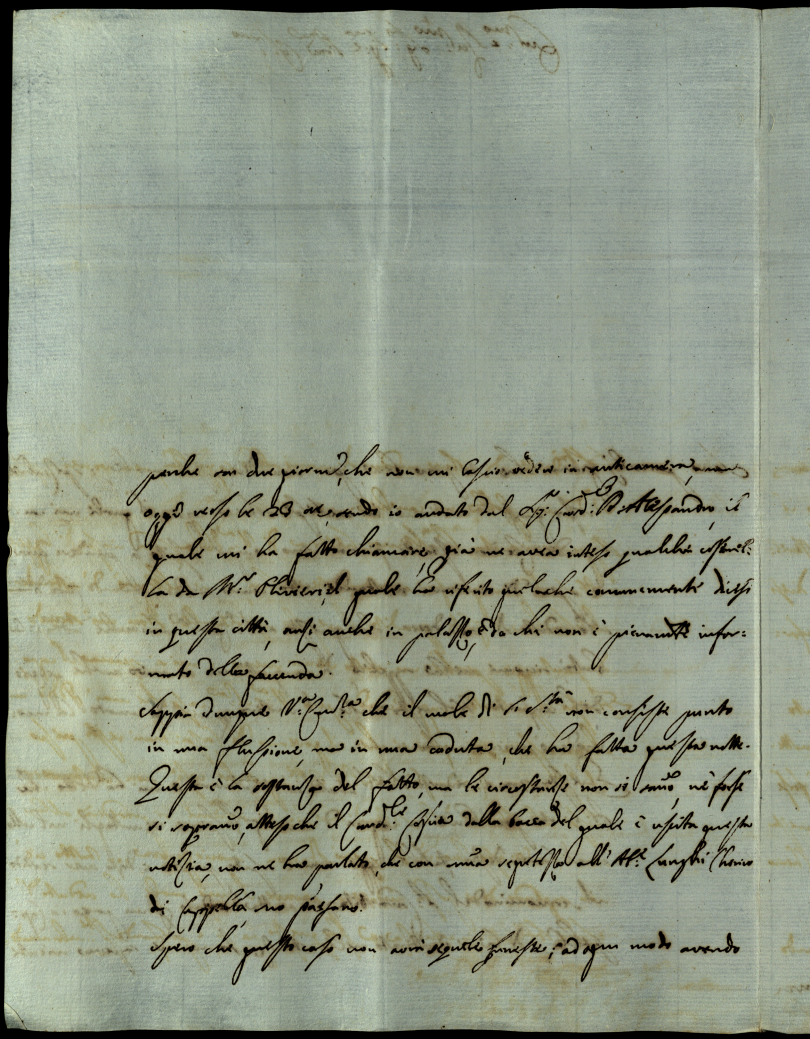 perche son due giorni, che non mi lascio vedere in anticamera, ma
oggi verso le 23 ore, sendo io andato dal Sig.r Card.l D. Alessandro, il
quale mi ha fatto chiamare, già ne avea inteso qualche coserel:
la da M.r Olivieri, il quale ha riferito quelche comunemente dicesi
in questa città, anzi anche in palazzo, da chi non è pienamte infor:
mato della facenda.
Sappia dunque V.ra che il male di S. S.tà non consiste punto
in una flussione, ma in una caduta, che ha fatta questa notte.
Questa è la sostanza del fatto, ma le circostanze non si sanno, nè forse
si sapranno, atteso che il Card.le dalla bocca del quale è uscita questa
notizia, non ne ha parlato, che con segretezza all' Ab.e Lunghi
di Cappella, suo paesano.
Spero che questo caso non avrà seguele funeste; ad ogni modo avendo